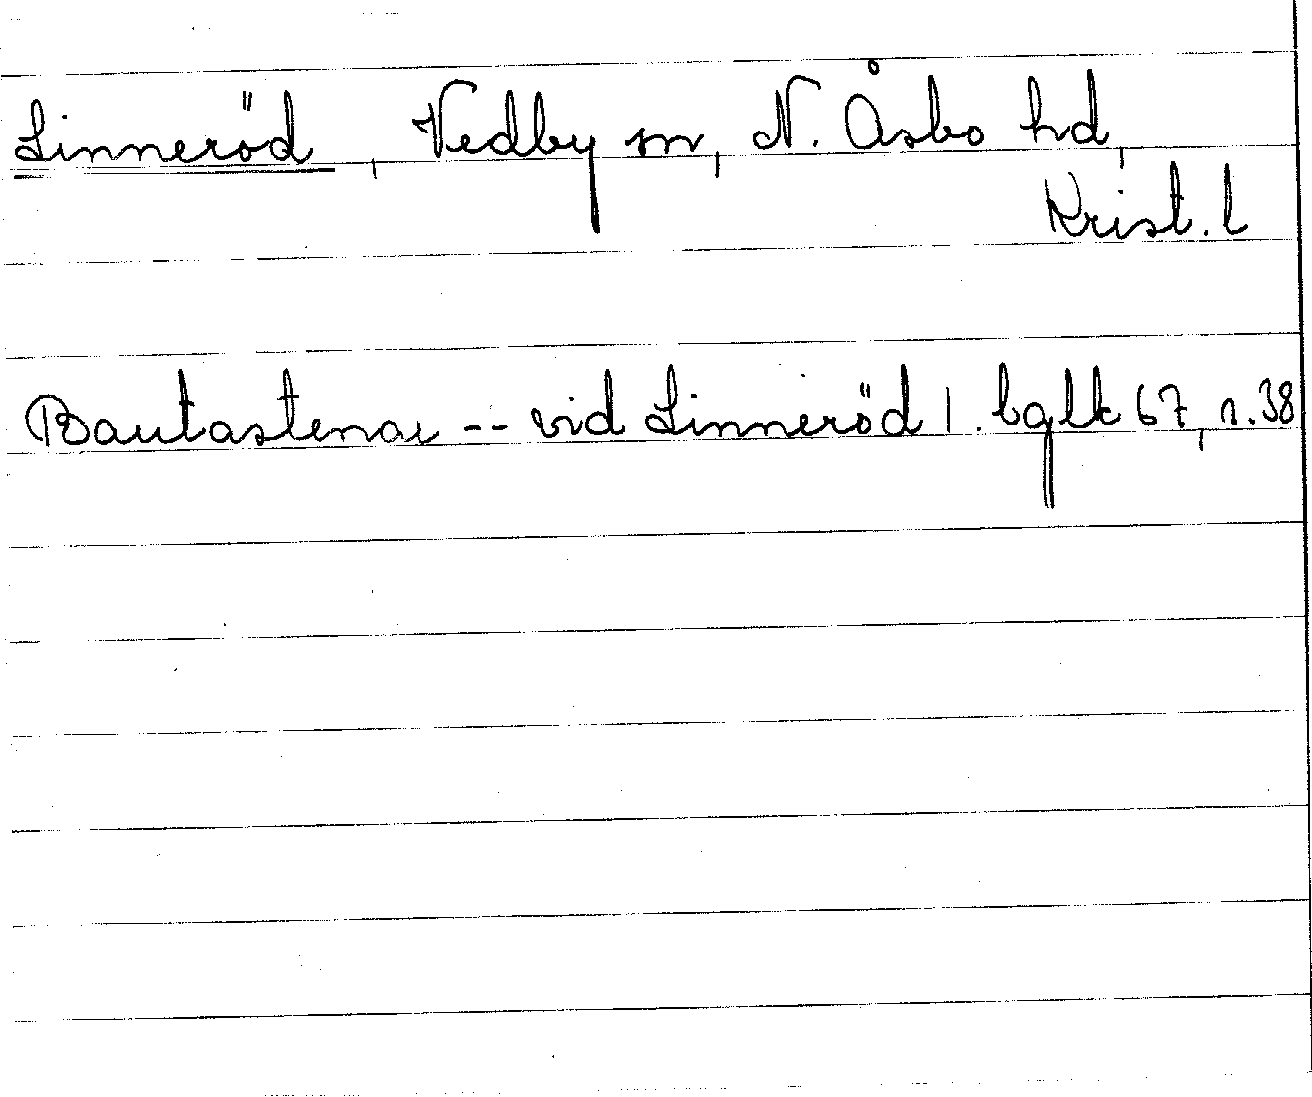 Linneröd, Vedby sn, N. Åsbo hd,
Krist. l
Bautastenar -- vid Linneröd l. bglk 67, s. 38